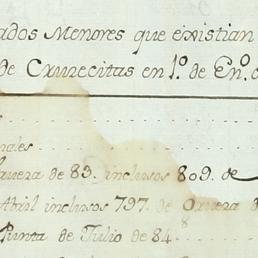 ados Menores que existian
de Cxucecitas en 1.º de En.º
nales
de 83. inclusos 809. de
Abril inclusos 797. de
Punta de Julio de 84